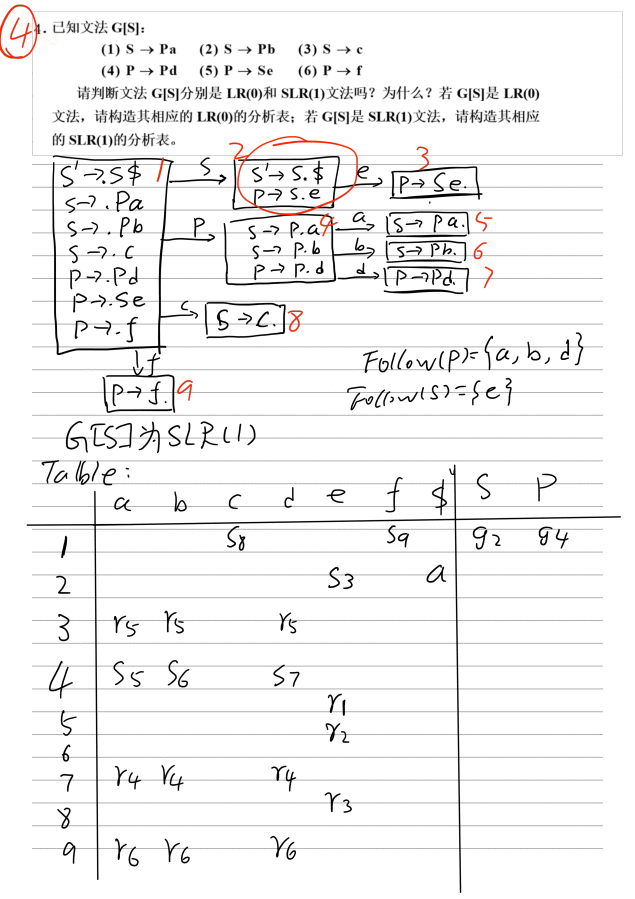 ④
1. 已知文法 G[S]:
(1) S → Pa (2) S → Pb (3) S → c
(4) P → Pd (5) P → Se (6) P → f
请判断文法 G[S]分别是 LR(0)和 SLR(1)文法吗？为什么？若 G[S]是 LR(0)
文法，请构造其相应的 LR(0)的分析表；若 G[S]是 SLR(1)文法，请构造其相应
的 SLR(1)的分析表。
S'→.S$ 1
S→.Pa
S→.Pb
S→.c
P→.Pd
P→.Se
P→.f
S
2
S'→S.$
P→S.e
e
3
P→Se.
P
S→P.a 4
S→P.b
P→P.d
a
S→Pa. 5
b
S→Pb. 6
d
P→Pd. 7
c
S→c. 8
f
P→f. 9
Follow(P)={a,b,d}
Follow(S)={e}
G[S]为SLR(1)
Table:
a b c d e f $ S P
1 S8 S9 g2 g4
2 S3 a
3 r5 r5 r5
4 S5 S6 S7
5 r1
6 r2
7 r4 r4 r4
8 r3
9 r6 r6 r6